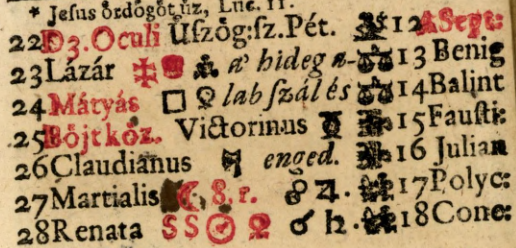 * Jesus ördögöt űz, Luc. 11.
22 D3. Oculi Üszög:sz. Pét. 12 A Sept:
23 Lázár a' hideg a- 13 Benig
24 Mátyás □ ♀ lab szál és 14 Balint
25 Böjtköz. Victorinus 15 Fausti:
26 Claudianus enged. 16 Julian
27 Martialis ☾ 8. r. ☍ ♃. 17 Polyc:
28 Renata ☌ ♄. 18 Conc: